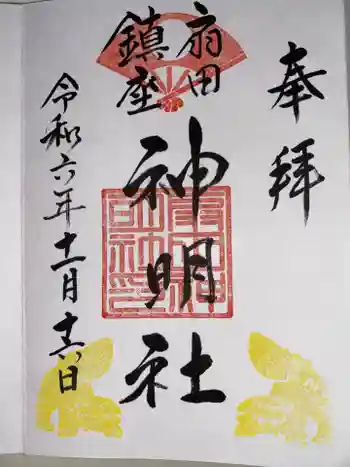 奉拝
扇田
鎮座
神明社
令和六年十一月十六日